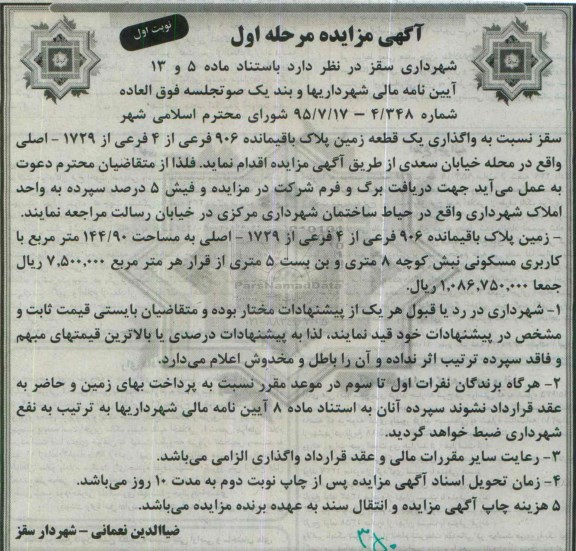 آگهی مزایده مرحله اول
نوبت اول
شهرداری سقز در نظر دارد باستناد ماده ۵ و ۱۳
آیین نامه مالی شهرداریها و بند یک صوتجلسه فوق العاده
شماره ۴/۳۴۸ – ۹۵/۷/۱۷ شورای محترم اسلامی شهر
سقز نسبت به واگذاری یک قطعه زمین پلاک باقیمانده ۹۰۶ فرعی از ۴ فرعی از ۱۷۲۹ - اصلی
واقع در محله خیابان سعدی از طریق آگهی مزایده اقدام نماید. فلذا از متقاضیان محترم دعوت
به عمل می‌آید جهت دریافت برگ و فرم شرکت در مزایده و فیش ۵ درصد سپرده به واحد
املاک شهرداری واقع در حیاط ساختمان شهرداری مرکزی در خیابان رسالت مراجعه نمایند.
- زمین پلاک باقیمانده ۹۰۶ فرعی از ۴ فرعی از ۱۷۲۹ - اصلی به مساحت ۱۴۴/۹۰ متر مربع با
کاربری مسکونی نبش کوچه ۸ متری و بن بست ۵ متری از قرار هر متر مربع ۷,۵۰۰,۰۰۰ ریال
جمعا ۱,۰۸۶,۷۵۰,۰۰۰ ریال.
ParsNamadData
۱- شهرداری در رد یا قبول هر یک از پیشنهادات مختار بوده و متقاضیان بایستی قیمت ثابت و
مشخص در پیشنهادات خود قید نمایند، لذا به پیشنهادات درصدی یا بالاترین قیمتهای مبهم
و فاقد سپرده ترتیب اثر نداده و آن را باطل و مخدوش اعلام می‌دارد.
۲- هرگاه برندگان نفرات اول تا سوم در موعد مقرر نسبت به پرداخت بهای زمین و حاضر به
عقد قرارداد نشوند سپرده آنان به استناد ماده ۸ آیین نامه مالی شهرداریها به ترتیب به نفع
شهرداری ضبط خواهد گردید.
۳- رعایت سایر مقررات مالی و عقد قرارداد واگذاری الزامی می‌باشد.
۴- زمان تحویل اسناد آگهی مزایده پس از چاپ نوبت دوم به مدت ۱۰ روز می‌باشد.
۵ هزینه چاپ آگهی مزایده و انتقال سند به عهده برنده مزایده می‌باشد.
ضیاالدین نعمانی – شهردار سقز